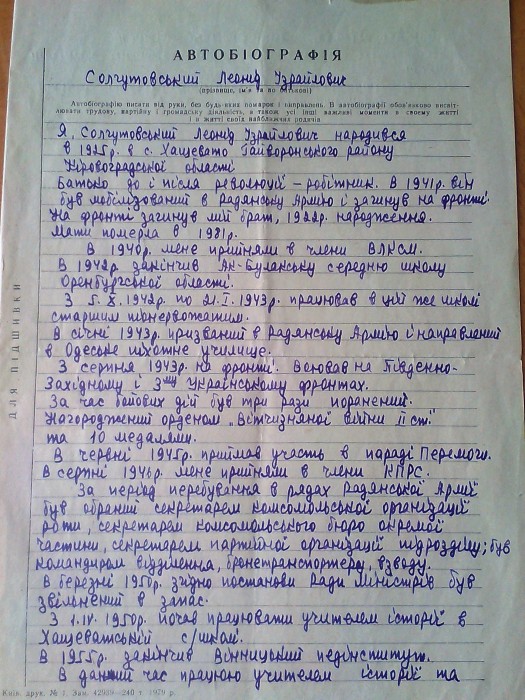 АВТОБІОГРАФІЯ
Солгутовський Леонід Ізраїлович
(прізвище, ім'я та по батькові)
Автобіографію писати від руки, без будь-яких помарок і направлень. В автобіографії обов'язково висвіт-
лювати трудову, партійну і громадську діяльність, а також усі інші важливі моменти в своєму житті
і в житті своїх найближчих родичів
Я, Солгутовський Леонід Ізраїлович народився
в 1925р. в с. Хащевато Гайворонського району
Кіровоградської області
Батько до і після революції – робітник. В 1941р. він
був мобілізований в Радянську Армію і загинув на фронті.
На фронті загинув мій брат, 1922р. народження.
Мати померла в 1981р.
В 1940р. мене прийняли в члени ВЛКСМ.
В 1942р закінчив Ак-Булакську середню школу
Оренбургської області.
З 5.X.1942р. по 21.I.1943р. працював в цій же школі
старшим піонервожатим.
В січні 1943р. призваний в Радянську Армію і направлений
в Одеське піхотне училище.
З серпня 1943р. на фронті. Воював на Південно-
Західному і 3му Українському фронтах.
За час бойових дій був три рази поранений.
Нагороджений орденом „Вітчизняної війни II ст."
та 10 медалями.
В червні 1945р. приймав участь в параді Перемоги.
В серпні 1946р. мене прийняли в члени КПРС.
За період перебування в рядах Радянської Армії
був обраний секретарем комсомольської організації
роти, секретарем комсомольського бюро окремої
частини, секретарем партійної організації підрозділу; був
командиром відділення, бронетранспортеру, взводу.
В березні 1950р. згідно постанови Ради Міністрів був
звільнений в запас.
З 1.IV.1950р. почав працювати учителем історії в
Хащеватській с/школі.
В 1955р. закінчив Вінницький педінститут.
В даний час працюю учителем історії та
ДЛЯ ПІДШИВКИ
Київ. друк. № 1. Зам. 42935—240 т. 1979 р.